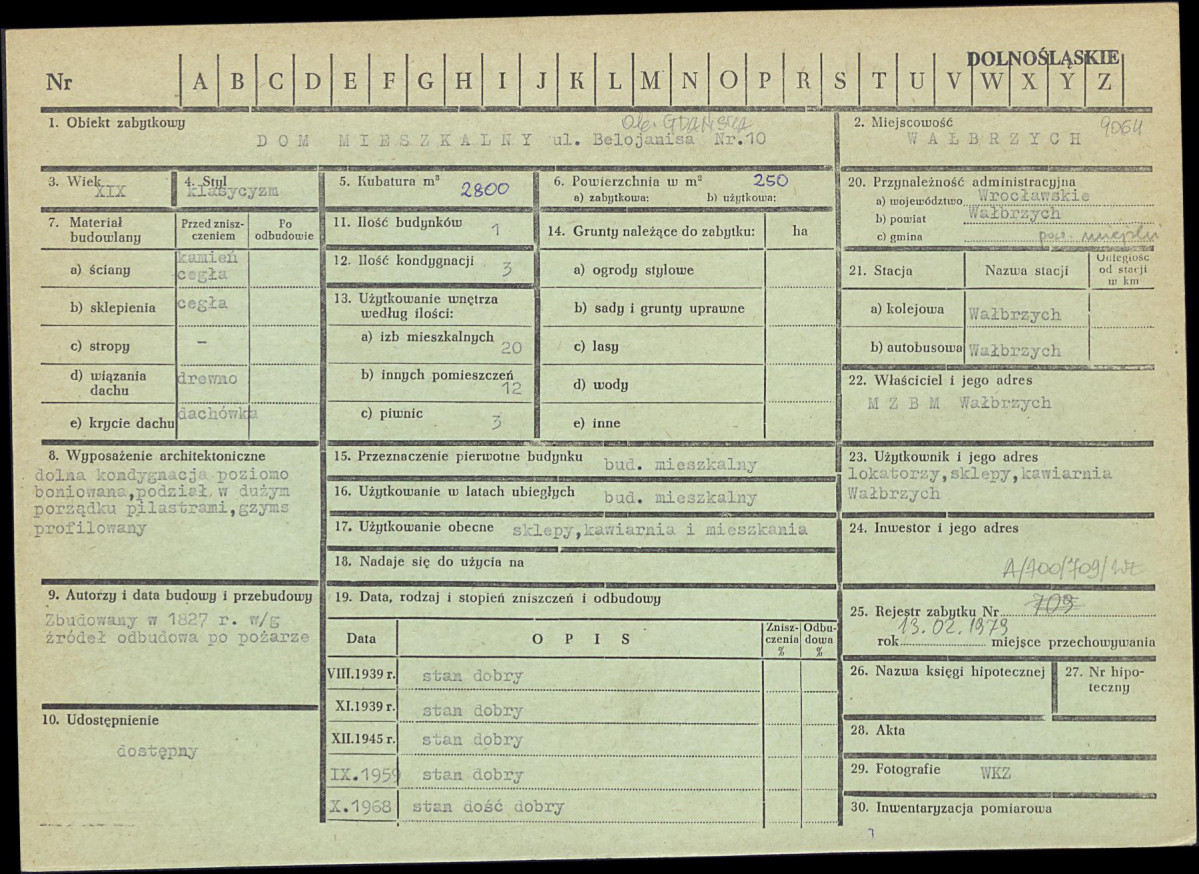 DOLNOŚLĄSKIE
Nr A B C D E F G H I J K L M N O P R S T U V W X Y Z
1. Obiekt zabytkowy
Ob. GDAŃSKA
DOM MIESZKALNY ul. Belojanisa Nr.10
2. Miejscowość 9064
WAŁBRZYCH
3. Wiek
XIX
4. Styl
klasycyzm
5. Kubatura m³ 2800
6. Powierzchnia w m² 250
a) zabytkowa: b) użytkowa:
7. Materiał budowlany
Przed zniszczeniem
Po odbudowie
a) ściany kamień cegła
b) sklepienia cegła
c) stropy –
d) wiązania dachu drewno
e) krycie dachu dachówka
8. Wyposażenie architektoniczne
dolna kondygnacja poziomo
boniowana,podział w dużym
porządku pilastrami,gzyms
profilowany
9. Autorzy i data budowy i przebudowy
Zbudowany w 1827 r. w/g
źródeł odbudowa po pożarze
10. Udostępnienie
dostępny
11. Ilość budynków 1
12. Ilość kondygnacji 3
13. Użytkowanie wnętrza
według ilości:
a) izb mieszkalnych 20
b) innych pomieszczeń 12
c) piwnic 3
14. Grunty należące do zabytku: ha
a) ogrody stylowe
b) sady i grunty uprawne
c) lasy
d) wody
e) inne
15. Przeznaczenie pierwotne budynku bud. mieszkalny
16. Użytkowanie w latach ubiegłych bud. mieszkalny
17. Użytkowanie obecne sklepy,kawiarnia i mieszkania
18. Nadaje się do użycia na
19. Data, rodzaj i stopień zniszczeń i odbudowy
Data OPIS Zniszczenia % Odbudowa %
VIII.1939 r. stan dobry
XI.1939 r. stan dobry
XII.1945 r. stan dobry
IX.1959 stan dobry
X.1968 stan dość dobry
20. Przynależność administracyjna
a) województwo Wrocławskie
b) powiat Wałbrzych
c) gmina pow. miejski
21. Stacja Nazwa stacji Odległość od stacji w km
a) kolejowa Wałbrzych
b) autobusowa Wałbrzych
22. Właściciel i jego adres
M Z B M Wałbrzych
23. Użytkownik i jego adres
lokatorzy,sklepy,kawiarnia
Wałbrzych
24. Inwestor i jego adres
A/700/709/Wł
25. Rejestr zabytku Nr 709
13.02.1979
rok miejsce przechowywania
26. Nazwa księgi hipotecznej
27. Nr hipoteczny
28. Akta
29. Fotografie WKZ
30. Inwentaryzacja pomiarowa